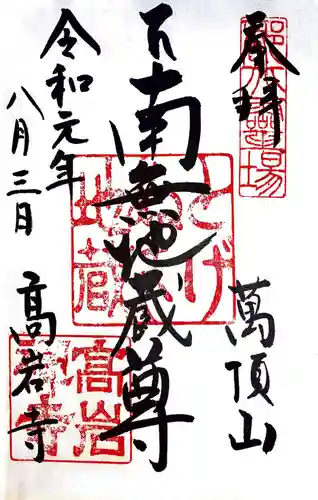 奉拝
萬頂山
南無地蔵尊
とげ
ぬき
地蔵
令和元年
八月三日
高岩寺
高岩